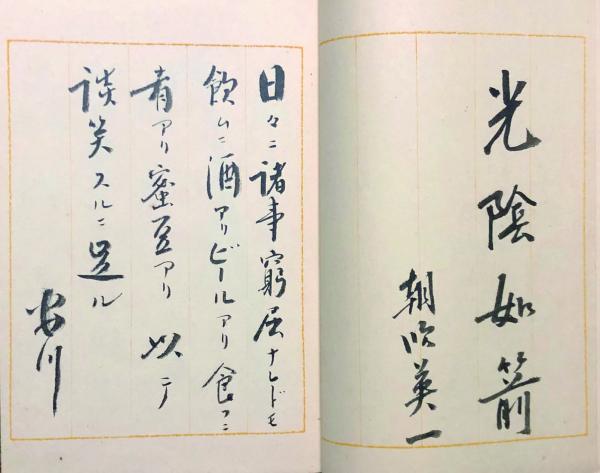 光陰如箭
朝吹英一
日々ニ諸事窮屈ナレドモ
飲ムニ酒アリビールアリ食フニ
肴アリ蜜豆アリ 以テ
談笑スルニ足ル
安川